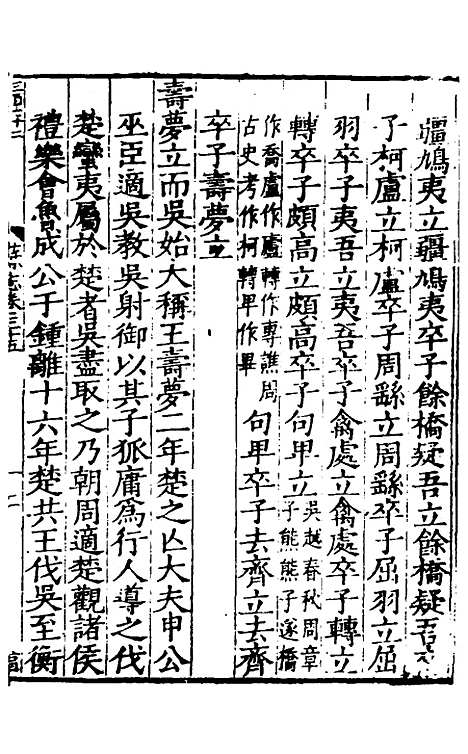 疆鳩夷立疆鳩夷卒子餘橋疑吾立餘橋疑吾卒
子柯盧立柯盧卒子周繇立周繇卒子屈羽立屈
羽卒子夷吾立夷吾卒子禽處立禽處卒子轉立
轉卒子頗高立頗高卒子句𤰞立吳越春秋周章子熊熊子遂橋
作喬盧作廬轉作專譙周古史考作柯轉𤰞作畢句𤰞卒子去齊立去齊
卒子壽夢立
壽夢立而吳始大稱王壽夢二年楚之亾大夫申公
巫臣適吳教吳射御以其子狐庸為行人導之伐
楚蠻夷屬於楚者吳盡取之乃朝周適楚觀諸侯
禮樂會魯成公于鍾離十六年楚共王伐吳至衡